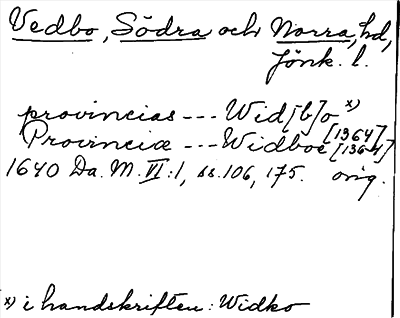 Vedbo, Södra och Norra, hd,
Jönk. l.
provincias --- Wid[b]o x) [1364]
Provinciæ --- Widboe [1364]
1640 Da. M. VI:1, ss. 106, 175. orig.
x) i handskriften: Widko